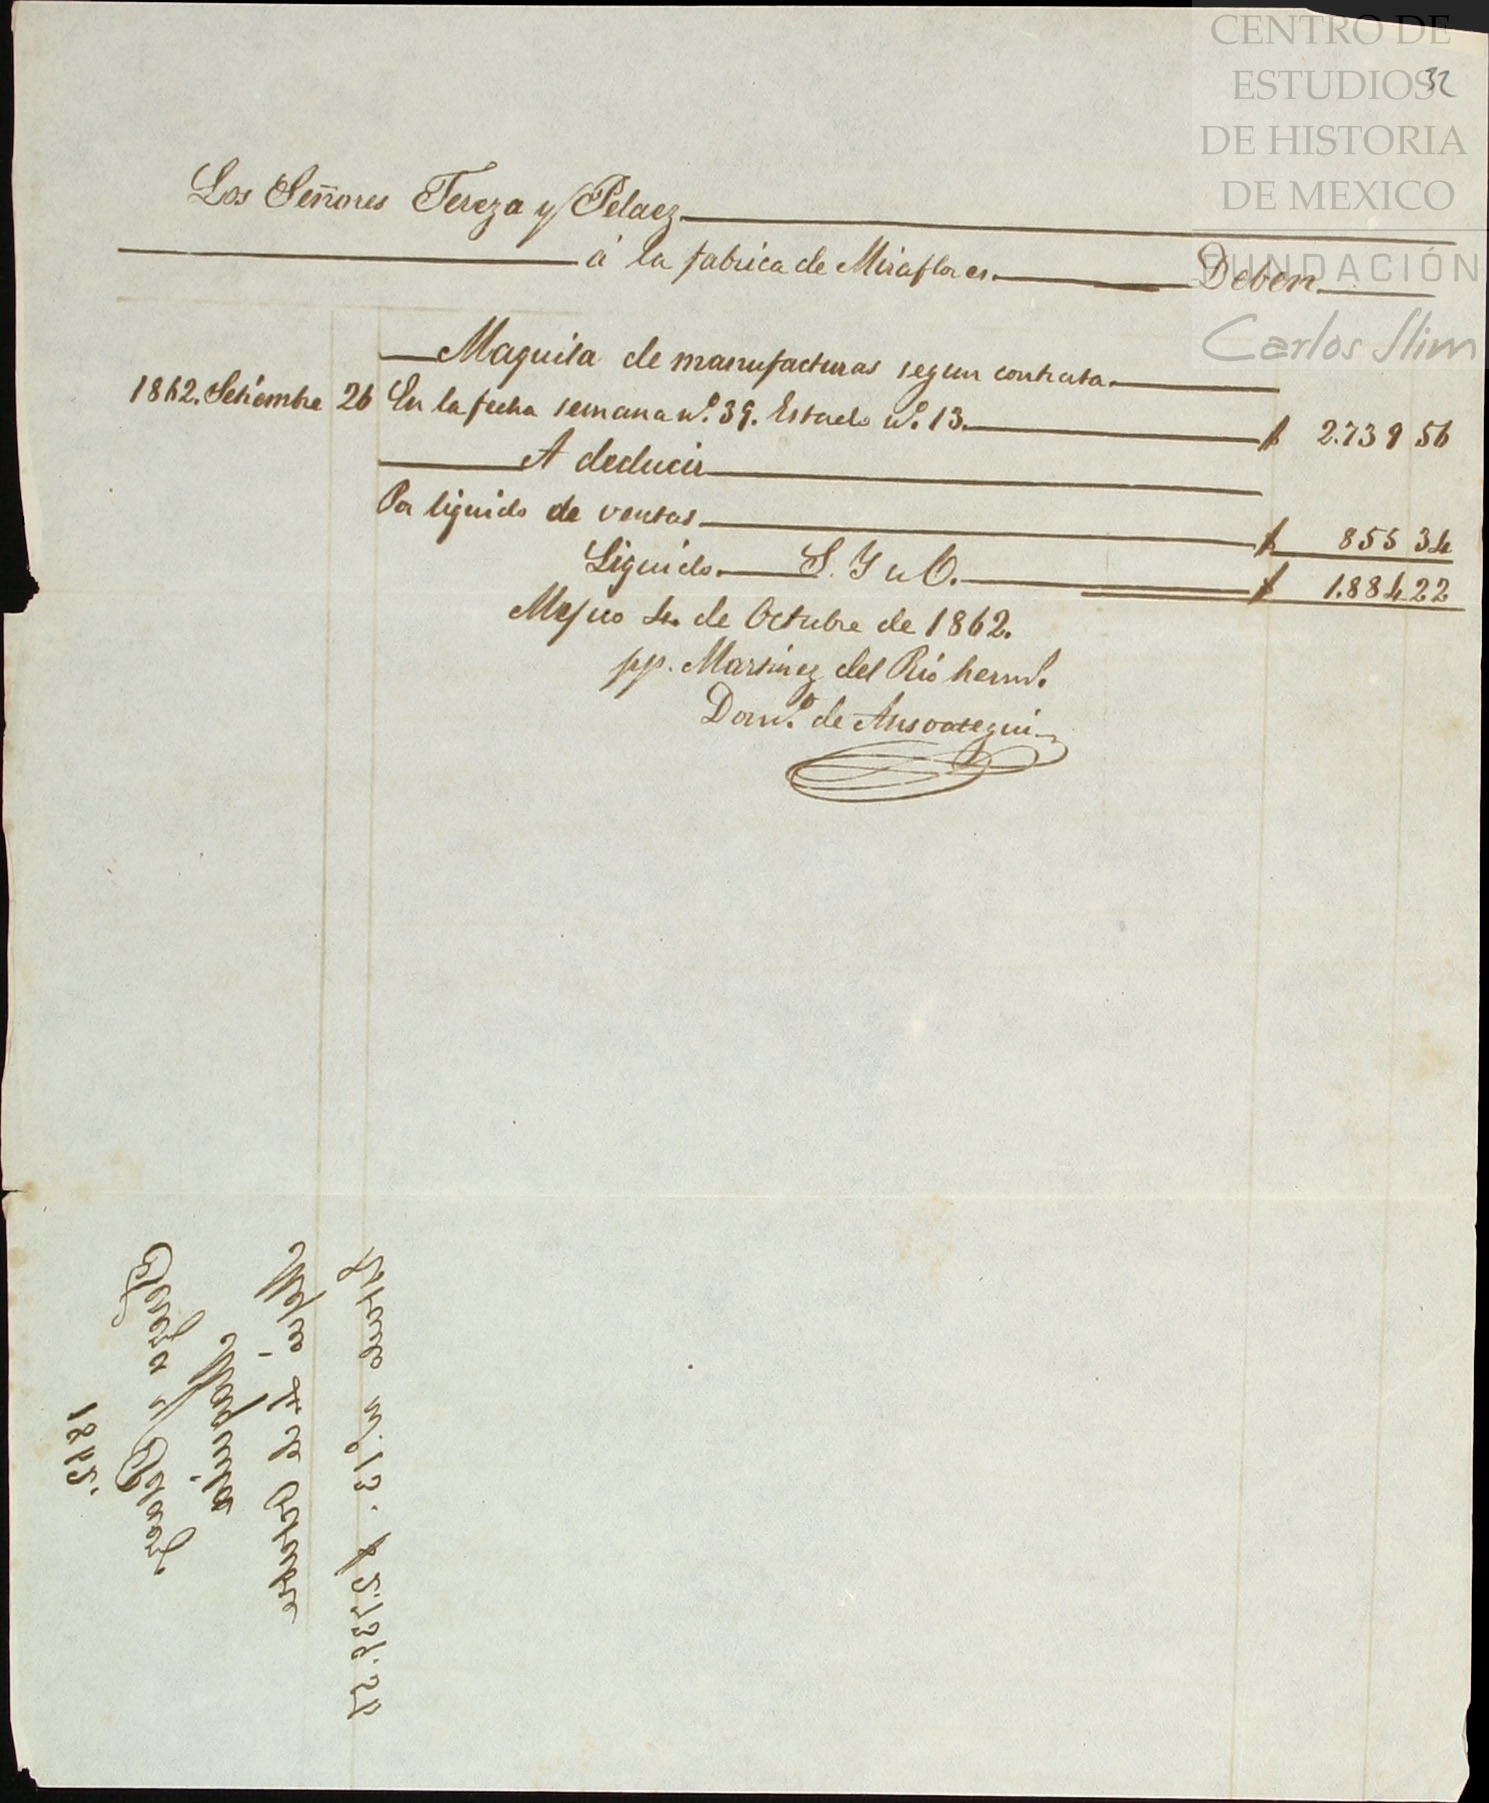 CENTRO DE
ESTUDIOS
DE HISTORIA
DE MEXICO
FUNDACIÓN
Carlos Slim
32
Los Señores Tereza y Pelaez
á la fabrica de Miraflores. Deben
Maquila de manufacturas segun contrata.
1862. Setiembre 26 En la fecha semana nº. 39. Estado nº. 13. $ 2.739 56
A deducir
Por liquido de ventas $ 855 34
Liquido. S. Y u O. $ 1.884 22
Mejico 4. de Octubre de 1862.
pp. Martinez del Rio hermº.
Domº. de Ansoategui
1862.
Tereza y Pelaez
Maquila
Mejico 4 de Octubre